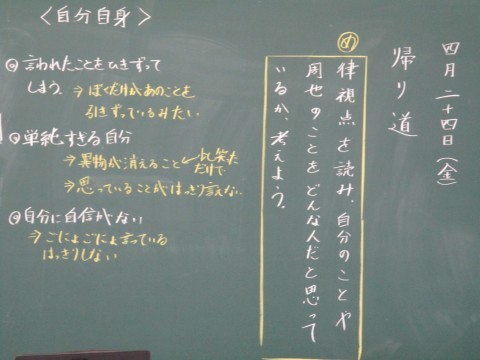 四月二十四日(金)
帰り道
律視点を読み、自分のことや
周也のことをどんな人だと思って
いるか、考えよう。
〈自分自身〉
◎言われたことをひきずって
しまう。⇒ぼくだけがあのことを
引きずっているみたい。
◎単純すぎる自分
⇒異物が消えること←少し笑った
だけで
⇒思っていることがはっきり言えない
◎自分に自信がない
⇒ごにょごにょ言っている
はっきりしない